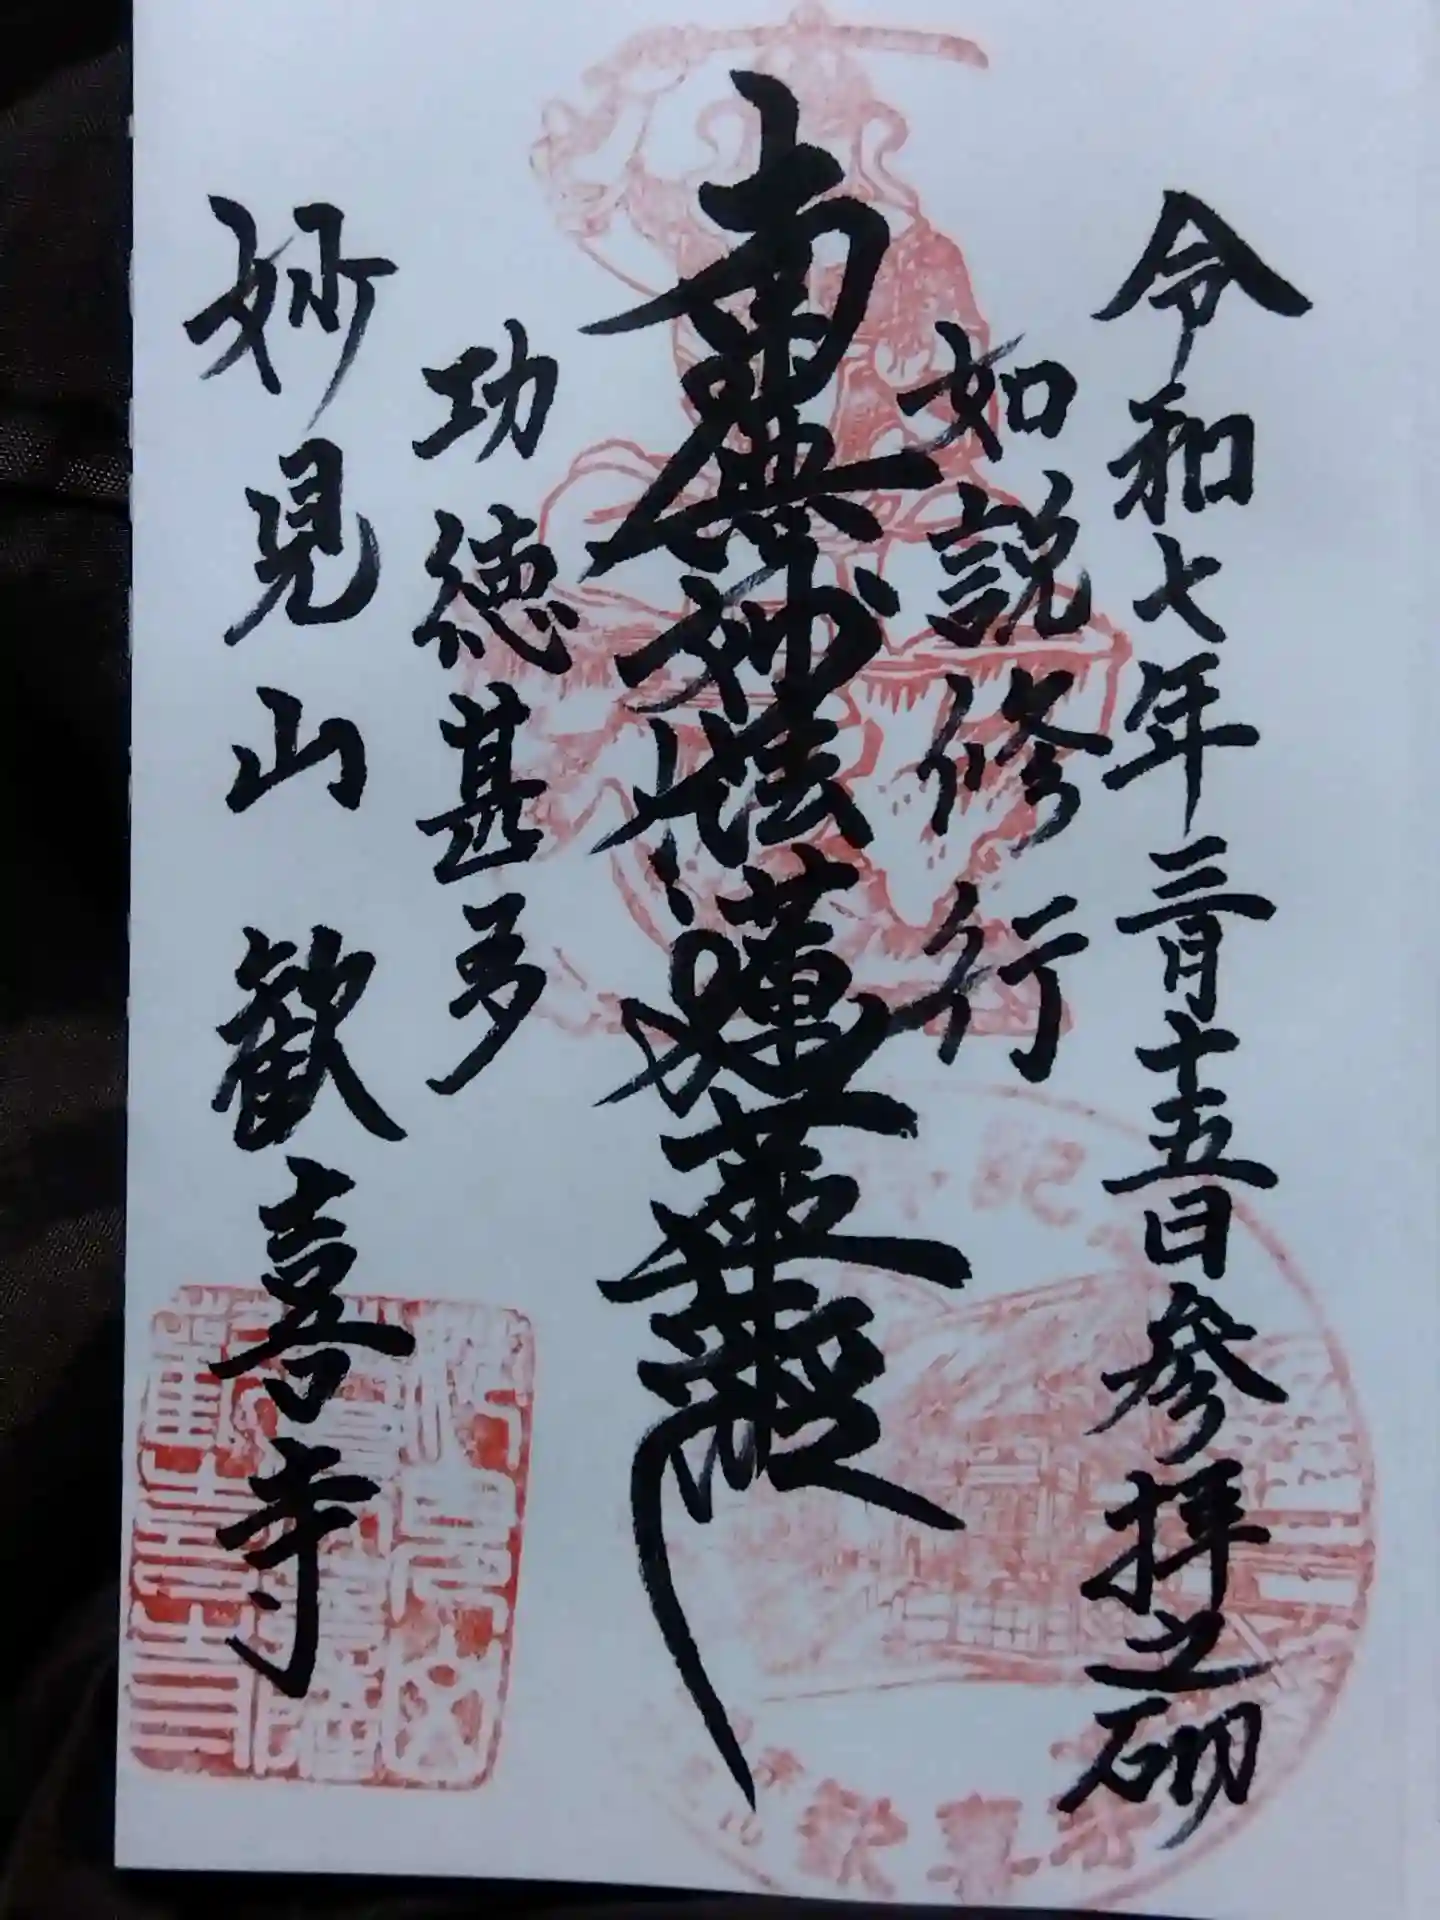 令和七年三月十五日参拝之砌
如説修行
南無妙法蓮華経
功徳甚多
妙見山歓喜寺